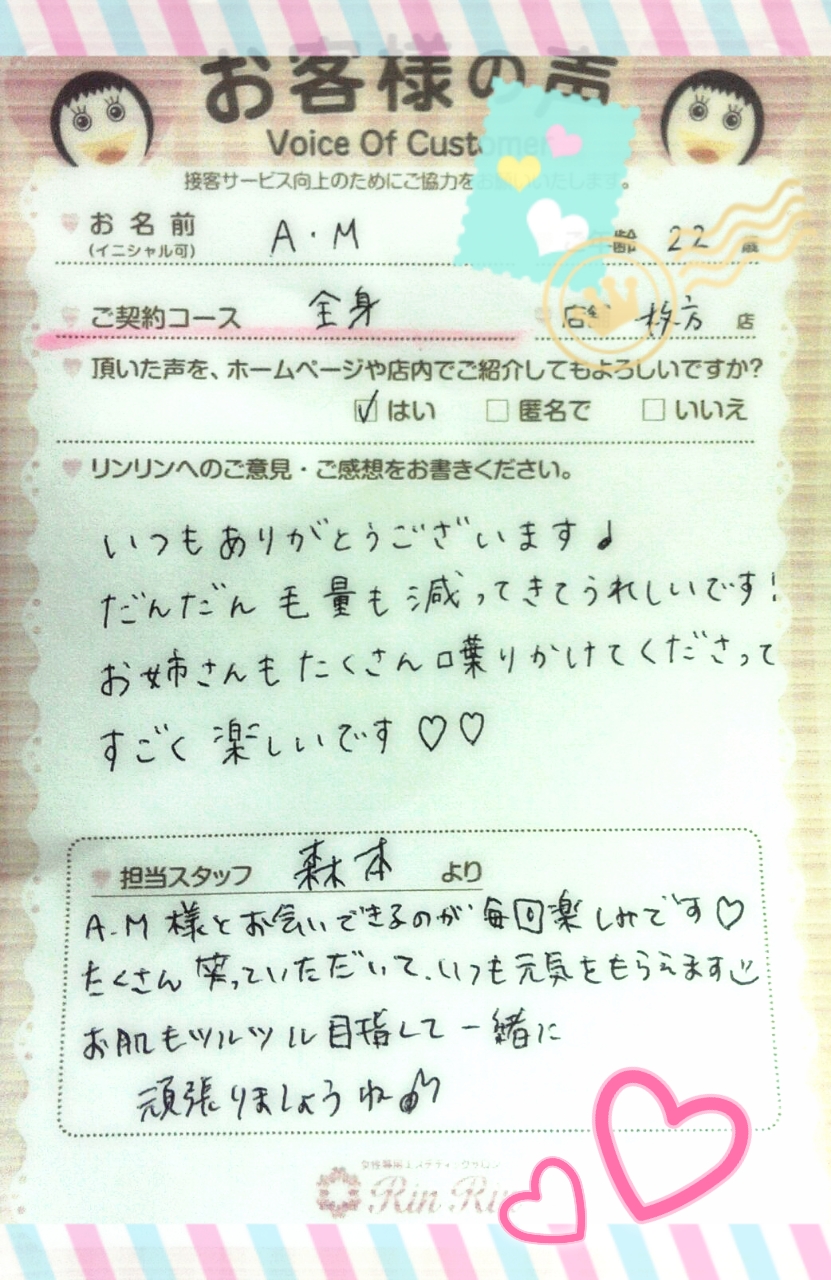 お客様の声
Voice Of Customer
接客サービス向上のためにご協力をお願いいたします。
お名前 A・M ご年齢 22 歳
(イニシャル可)
ご契約コース 全身 店舗 枚方 店
頂いた声を、ホームページや店内でご紹介してもよろしいですか?
☑ はい □ 匿名で □ いいえ
リンリンへのご意見・ご感想をお書きください。
いつもありがとうございます♪
だんだん毛量も減ってきてうれしいです!
お姉さんもたくさん喋りかけてくださって
すごく楽しいです♡♡
担当スタッフ 森本 より
A.M様とお会いできるのが毎回楽しみです♡
たくさん笑っていただいて、いつも元気をもらえます
お肌もツルツル目指して一緒に
頑張りましょうね
女性専用エステティックサロン
Rin Ri